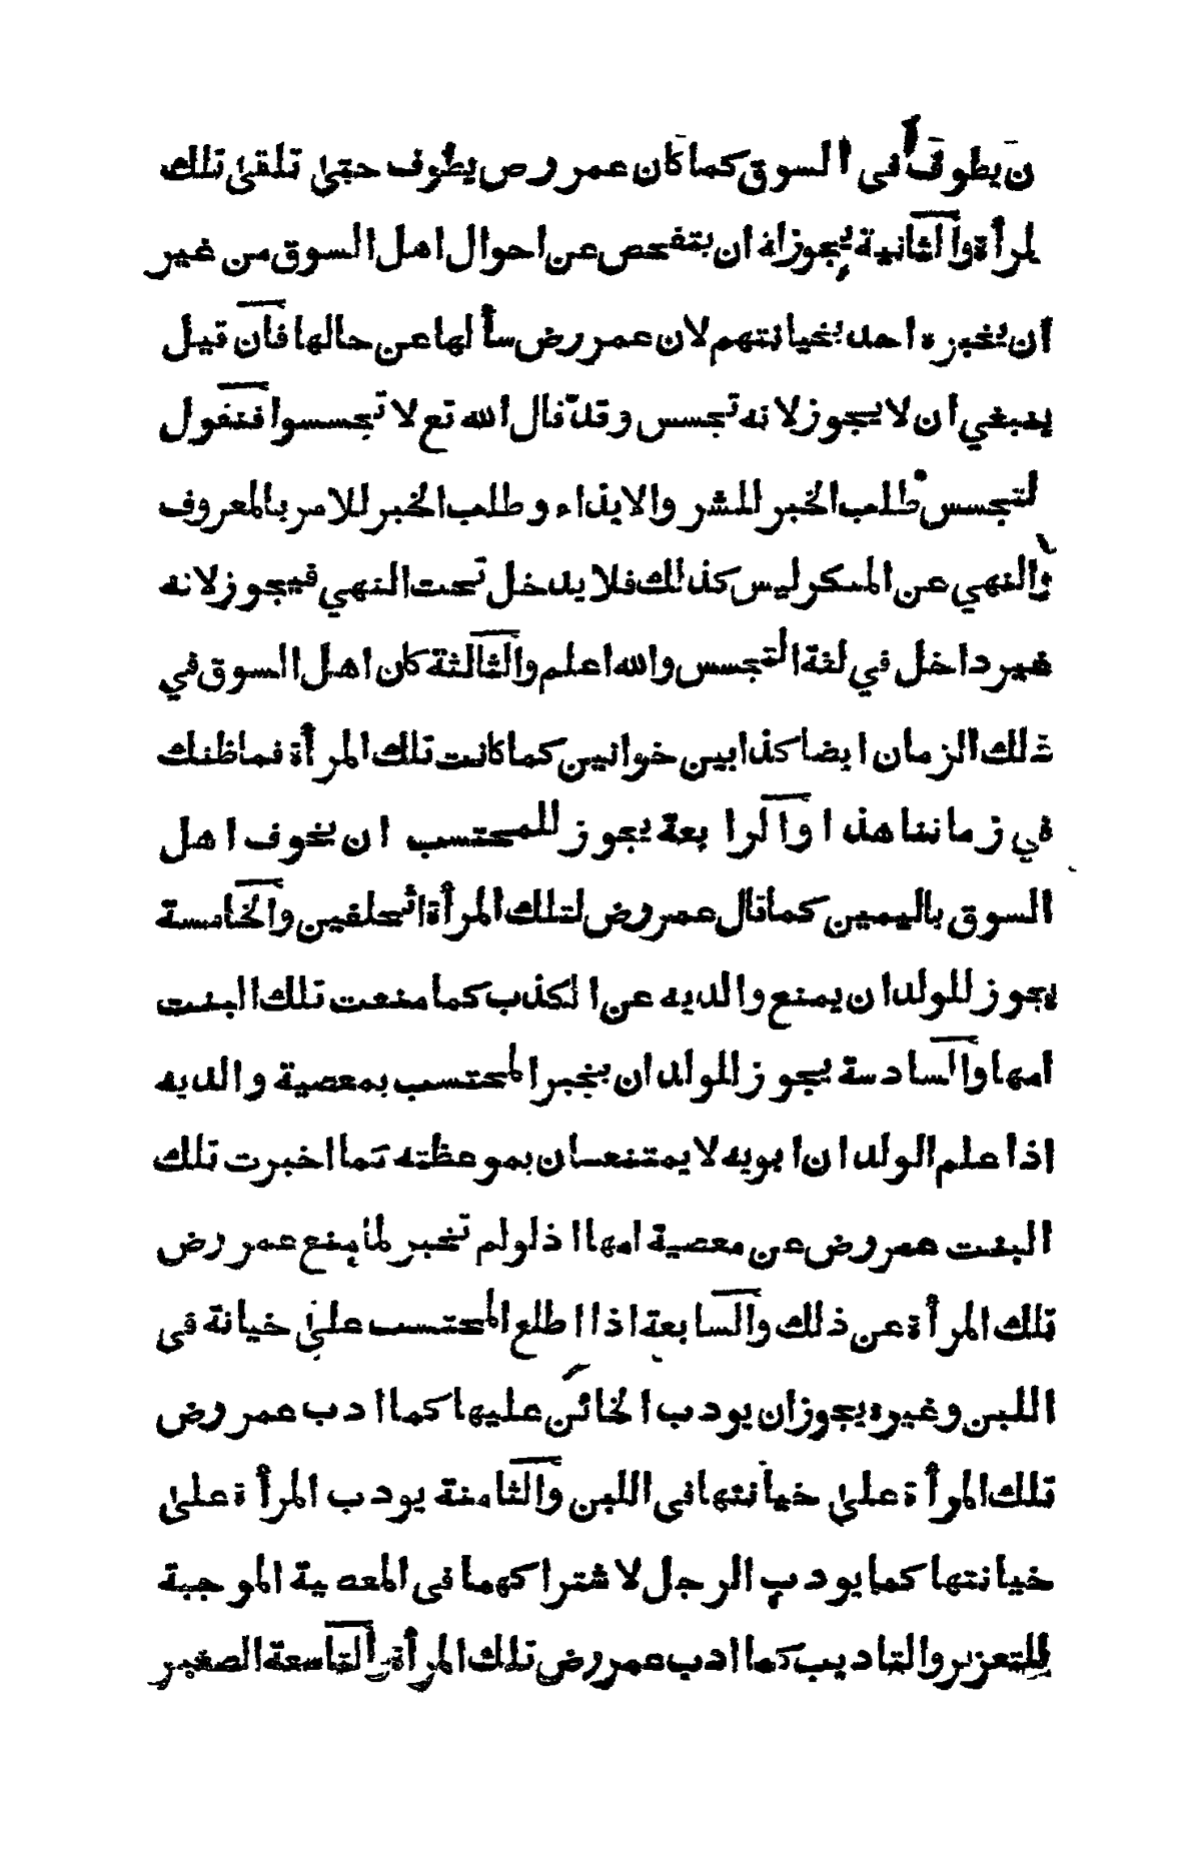 ن يطوف في السوق كما كان عمر رض يطوف حتى تلقى تلك
لمرأة والثانية يجوز له ان يتفحص عن احوال اهل السوق من غير
ان يخبره احد بخيانتهم لان عمر رض سأ لها عن حالها فان قيل
ينبغي ان لا يجوز لانه تجسس وقد قال الله تع لا تجسسوا فنقول
لتجسس طلب الخبر للشر والايذاء وطلب الخبر للامر بالمعروف
والنهي عن المنكر ليس كذلك فلا يدخل تحت النهي فيجوز لانه
غير داخل في لغة التجسس والله اعلم والثالثة كان اهل السوق في
ذلك الزمان ايضا كذابين خوانين كما كانت تلك المرأة فما ظنك
في زماننا هذا والرابعة يجوز للمحتسب ان يخوف اهل
السوق باليمين كما قال عمر رض لتلك المرأة اتحلفين والخامسة
يجوز للولد ان يمنع والديه عن الكذب كما منعت تلك البنت
امها والسادسة يجوز للولد ان يخبر المحتسب بمعصية والديه
اذا علم الولد ان ابويه لا يمتنعان بموعظته كما اخبرت تلك
البنت عمر رض عن معصية امها اذ لو لم تخبر لما يمنع عمر رض
تلك المرأة عن ذلك والسابعة اذا اطلع المحتسب على خيانة فى
اللبن وغيره يجوز ان يودب الخائن عليها كما ادب عمر رض
تلك المرأة على خيانتها فى اللبن والثامنة يودب المرأة على
خيانتها كما يودب الرجل لاشتراكهما فى المعصية الموجبة
للتعزير والتاديب كما ادب عمر رض تلك المرأة والتاسعة الصغير